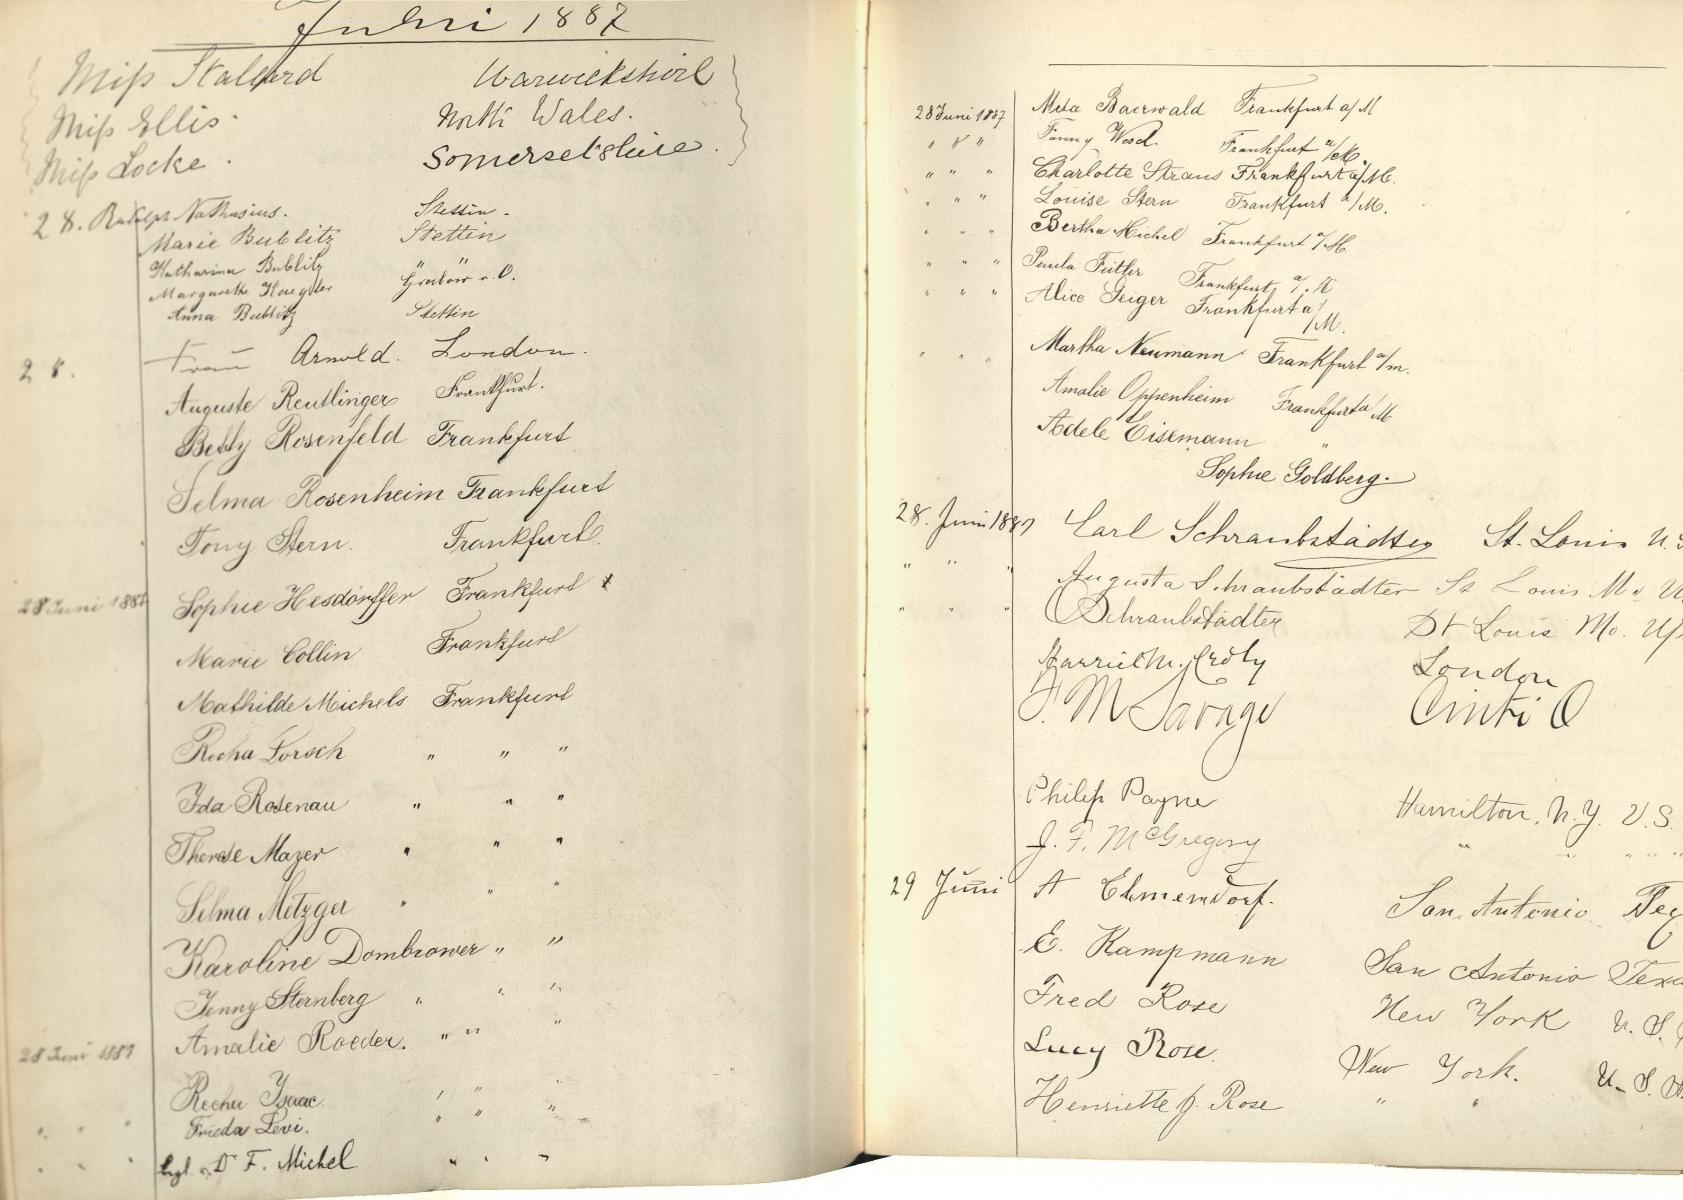 Juni 1887
Miss Stallard Warwickshire
Miss Ellis North Wales.
Miss Locke Somersetshire.
28. Rudolph Nathusius. Stettin.
Marie Bublitz Stettin
Katharina Bublitz Grabow a. O.
Margarethe
Anna Bublitz Stettin
28. Frau Arnold. London.
Auguste Reutlinger Frankfurt.
Betty Rosenfeld Frankfurt
Selma Rosenheim Frankfurt
Tony Stern. Frankfurt.
28 Juni 1887 Sophie Hesdörffer Frankfurt
Marie Collin Frankfurt
Mathilde Michels Frankfurt
Recha Lorsch " " "
Ida Rosenau " " "
Therese Mayer " " "
Selma Metzger " " "
Karoline Dombrower " "
Jenny Sternberg " " "
Amalie Roeder. " " "
28 Juni 1887
Recha Isaac. " " "
" " " Frieda Levi. " " "
" " " F. Michel " " "
28 Juni 1887 Meta Baerwald Frankfurt a/M
" " " Fanny Frankfurt a/M.
" " " Charlotte Straus Frankfurt a/M.
" " " Louise Stern Frankfurt a/M.
" " " Bertha Michel Frankfurt a/M.
" " " Paula Feitler Frankfurt a/M
" " " Alice Geiger Frankfurt a/M.
" " " Martha Neumann Frankfurt a/m.
Amalie Oppenheim Frankfurt a/M
Adele Eisemann "
Sophie Goldberg.
28. Juni 1887 Carl Schraubstädter St. Louis U.S
" " " Augusta Schraubstädter St Louis Mo U
" " " Schraubstädter St Louis Mo. U
London
J. M Savage Cinti O
Philip Payne Hamilton, N.Y. U.S.
J. F. McGregory " " " " "
29 Juni A Elmendorf. San Antonio Tex
E. Kampmann San Antonio Texa
Fred Rose New York U.S.
Lucy Rose. New York. U.S.A
Henriette J. Rose " "